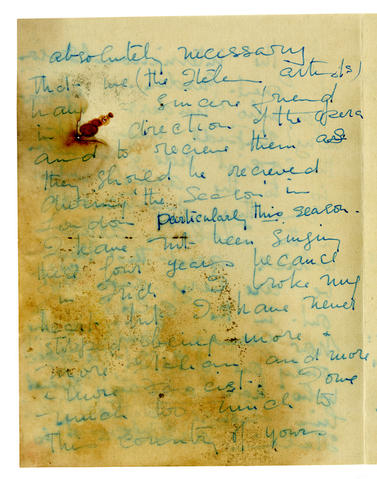 absolutely necessary
that we (the Italian artists)
have sincere friend
in direction of the opera
and to recieve them as
they should be recieved
during the season in
London particularly this season.
I have not been singing
four years because
in broke my
I have never
being more
more Italian and more
more
much too much to
the country of yours